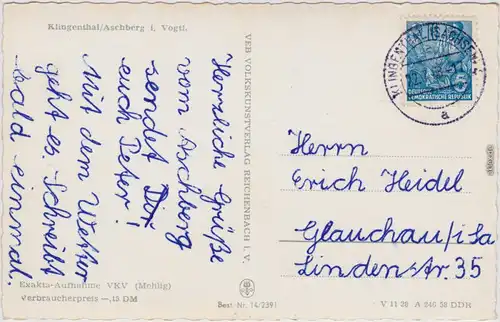 Klingenthal/Aschberg i. Vogtl.
Herzliche Grüße
vom Aschberg
sendet Dir
euch Peter!
Mit dem Wetter
geht es. Schreibt
bald einmal.
Exakta-Aufnahme VKV (Mehlig)
Verbraucherpreis —,15 DM
VEB VOLKSKUNSTVERLAG REICHENBACH i. V.
Best. Nr. 14/2391
KLINGENTHAL (SACHSEN)
a
DEUTSCHE
DEMOKRATISCHE REPUBLIK
Herrn
Erich Heidel
Glauchau/i Sa
Lindenstr. 35
V 11 28 A 246 58 DDR